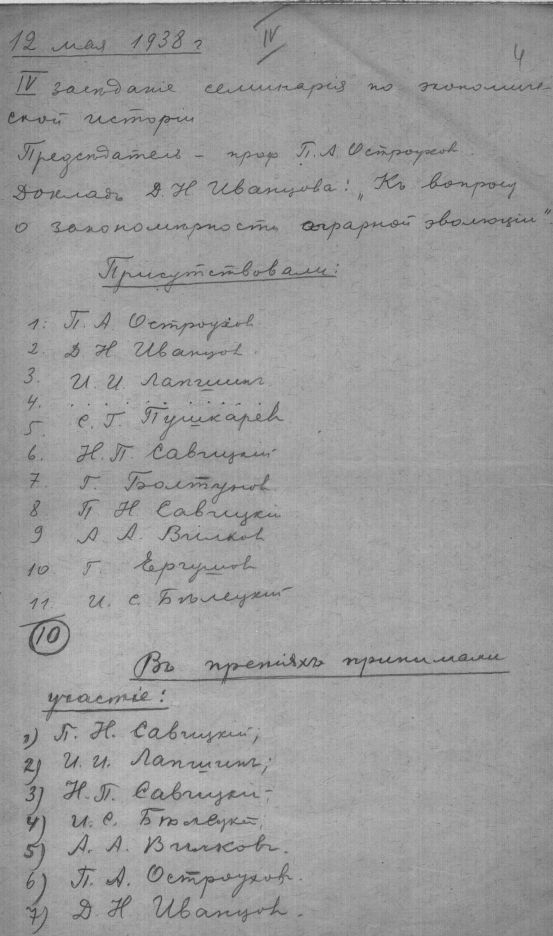 12 мая 1938 г
IV
4
IV засѣданіе семинарія по экономиче-
ской исторіи
Предсѣдатель – проф П. А. Остроухов
Докладъ Д. Н Иванцова: „Къ вопросу
о закономѣрность аграрной эволюціи"
Присутствовали:
1. П. А. Остроухов
2. Д. Н Иванцов.
3. И. И. Лапшинъ
4. . . . . . . . . .
5. С. Г. Пушкарёв
6. Н. П. Савицкий
7. Г. Болтунов
8 П Н Савицкій
9 А. А. Вилков
10 Г. Ергушов
11. И. С. Бѣлецкий
10
Въ преніяхъ принимали
участіе:
1) П. Н. Савицкий;
2) И. И. Лапшинъ;
3) Н. П. Савицкий;
4) И. С. Бѣлецкій;
5) А. А. Вилковъ.
6) П. А. Остроухов.
7) Д. Н Иванцов.